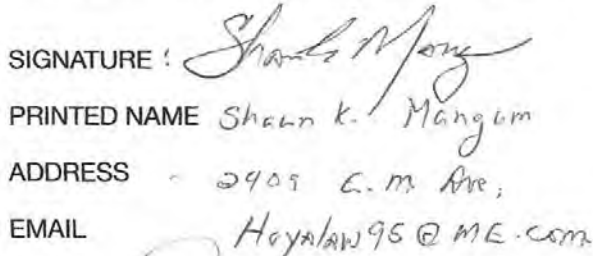 SIGNATURE :
PRINTED NAME Shaun K. Mangum
ADDRESS 2909 E. M. Ave,
EMAIL Hoyalaw95@ME.com